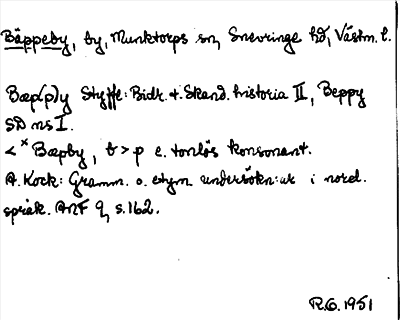 Bäppeby, by, Munktorps sn, Snevringe hd, Västm. l.
Bæp(p)y Styffe: Bidr. t. Skand. historia II, Beppy
SD ns I.
< *Bæpby, b > p e. tonlös konsonant.
A. Kock: Gramm. o. etym. undersökn:ar i nord.
språk. ANF 9, s. 162.
R.G. 1951